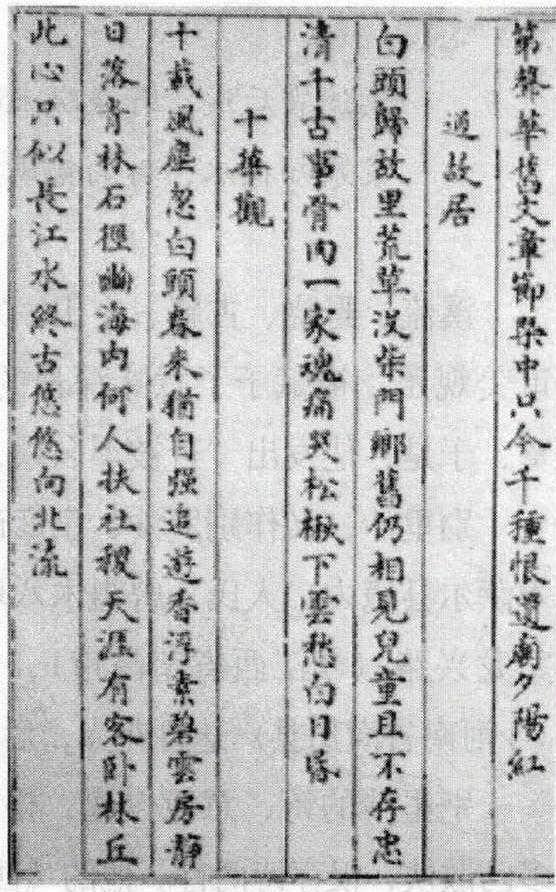 第聲華舊文章節槩中只今千種恨遺廟夕陽紅
過故居
白頭歸故里荒草沒柴門鄉舊仍相見兒童且不存忠
清千古事骨肉一家魂痛哭松楸下雲愁白日昏
十華觀
十載風塵忽白頭春來猶自强追遊香浮素碧雲房靜
日落青林石徑幽海內何人扶社稷天涯有客卧林丘
此心只似長江水終古悠悠向北流